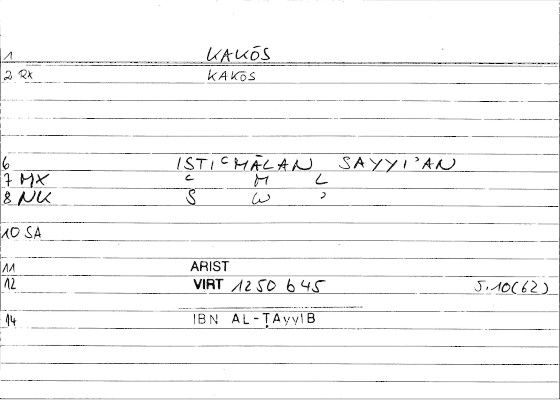 1 KAKŌS
2 RX KAKŌS
6 ISTIᶜMĀLAN SAYYIʾAN
7 MX ᶜ M L
8 NK S W ʾ
10 SA
11 ARIST
12 VIRT 1250 b 45 5.10(62)
14 IBN AL-ṬAyyIB